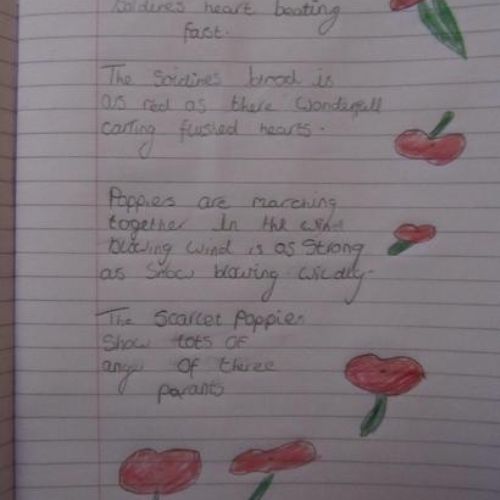 Soldires heart beating
fast.
The Soldines blood is
as red as there wonderfull
caring flushed hearts.
Poppiers are marching
together In the wind
blowing wind is as Strong
as Snow blowing wildly.
The Scarlet Poppies
Show lots of
anger Of theree
parants